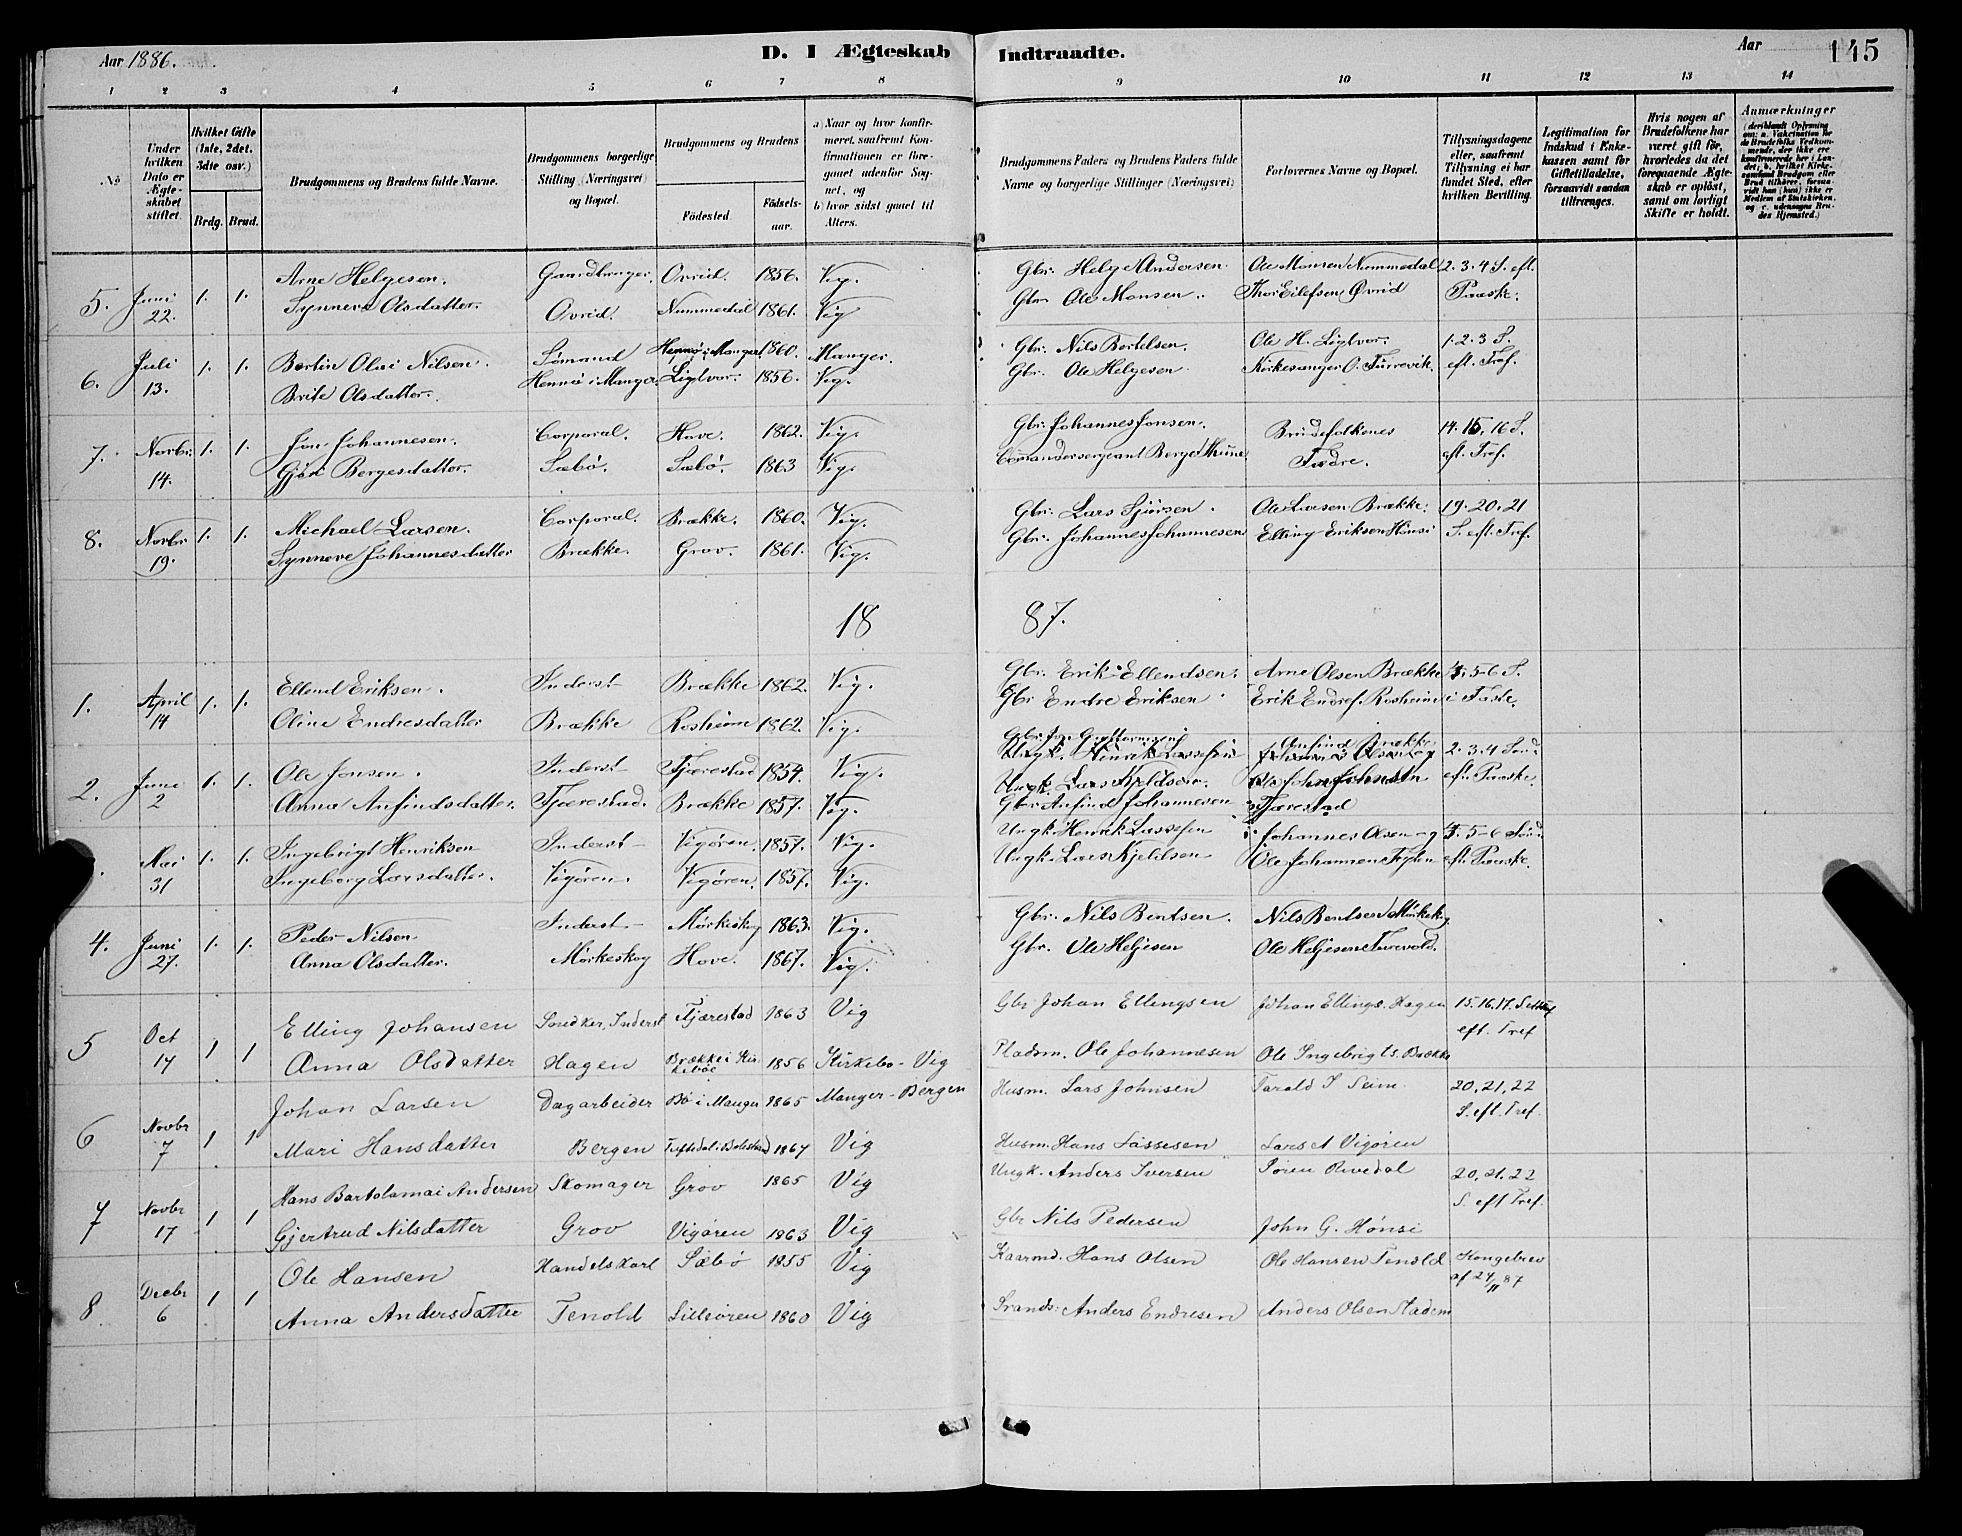 Aar 1886.
D. I Ægteskab Indtraadte.
Aar
145
1 2 3 4 5 6 7 8 9 10 11 12 13 14
No
Under hvilken Dato er Ægteskabet stiftet.
Hvilket Gifte (1ste, 2det, 3die osv.)
Brdg. Brud.
Brudgommens og Brudens fulde Navne.
Brudgommens borgerlige Stilling (Næringsvei) og Bopæl.
Brudgommens og Brudens
Fødested.
Fødselsaar.
a) Naar og hvor konfirmeret, saafremt Konfirmationen er foregaaet udenfor Sognet, og
b) hvor sidst gaaet til Alters.
Brudgommens Faders og Brudens Faders fulde Navne og borgerlige Stillinger (Næringsvei)
Forlovernes Navne og Bopæl.
Tillysningsdagene eller, saafremt Tillysning ei har fundet Sted, efter hvilken Bevilling.
Legitimation for Indskud i Enkekassen samt for Giftetilladelse, forsaavidt saadan tiltrænges.
Hvis nogen af Brudefolkene har været gift før, hvorledes da det foregaaende Ægteskab er opløst, samt om lovligt Skifte er holdt.
Anmærkninger
5. Juni 22. 1. 1. Arne Helgesen. Gaardbruger. Ovrid. 1856. Vig. Gbr. Helge Andersen. Ole Monsen Nummedal 2. 3. 4 S. eft.
Synneva Olsdatter. Ovrid. Nummedal 1861. Vig Gbr. Ole Monsen. Thor Eilefsen Øvrid Paaske.
6. Juli 13. 1. 1. Bertin Olai Nilsen. Sømand Hennø i Manger. 1860. Manger. Gbr. Nils Bertelsen. Ole H. Ligtvor. 1. 2. 3 S.
Brite Olsdatter. Hennø i Manger. Ligtvor. 1856. Vig. Gbr. Ole Helgesen Kirkesanger O. Turvevik. eft. Tref.
7. Novbr. 14. 1. 1. Jon Johannesen. Corporal. Hove. 1862. Vig. Gbr. Johannes Jonsen. Brudefolkenes 14. 15. 16 S.
Gjøri Bergesdatter. Sæbø. Sæbø. 1863 Vig. Comandersergeant Berge Thune Fædre. eft. Tref.
8. Novbr. 19. 1. 1. Michael Larsen. Corporal. Brække. 1860. Vig. Gbr. Lars Sjursen. Ole Larsen Brække. 19. 20. 21
Synneve Johannesdatter Brække. Grov. 1861. Vig. Gbr. Johannes Johannesen Elling Eriksen Hønsi S. eft. Tref.
18 87.
1. April 14 1. 1. Ellend Eriksen. Inderst Brække 1862. Vig. Gbr. Erik Ellendsen. Arne Olsen Brække 4. 5-6 S.
Oline Endresdatter Brække Rosheim 1862. Vig. Gbr Endre Eriksen Erik Endres. Rosheim i Faste.
2. Juni 2 1. 1. Ole Jonsen. Inderst Tjærestad 1854. Vig. Gbr. Jon Guttormsen Anfind Brække 2. 3. 4 Sønd.
Ungk. Henrik Lassesen
Ungk. Lars Kjeldsen. Ole John Johnsen eft. Paaske.
Anna Anfindsdatter. Tjærestad. Brække 1857. Vig. Gbr. Anfind Johannesen Tjærestad
Mai 31 1. 1. Ingebrigt Henriksen Inderst Vigøren. 1857. Vig. Ungk. Henrik Lassesen Johannes Olsen og 4. 5-6 Sønd.
Ingeborg Larsdatter. Vigøren. Vigøren. 1857. Vig. Ungk. Lars Kjeldsen Ole Johannen Tryten eft. Paaske.
4. Juni 27. 1. 1. Peder Nilsen Inderst Mørkeskog 1863. Vig. Gbr. Nils Bentsen. Nils Bentsen Mørkeskog.
Anna Olsdatter. Mørkeskog Hove. 1867. Vig. Gbr. Ole Helgesen Ole Helgesen Turvold.
5 Oct 14 1 1 Elling Johansen Snedker, Inderst Tjærestad 1863 Vig Gbr Johan Ellingsen Johan Ellings. Hagen 15. 16. 17. S eft. Tref
Anna Olsdatter Hagen Brække i Kirkebøe 1856 Kirkebo - Vig Pladsm. Ole Johannesen Ole Ingebrigts. Brække
6 Novbr 7 1 1 Johan Larsen Dagarbeider Bø i Manger 1865 Manger - Bergen Husm. Lars Johnsen Tarald I Seim. 20, 21, 22
S. eft. Tref.
Mari Hansdatter Bergen Teftedal i Balestrand 1867 Vig Husm. Hans Lassesen Lars A Vigøren
7 Novbr 17 1 1 Hans Bartolamai Andersen Skomager Grov 1865 Vig Ungk. Anders Iversen Søren Revedal 20, 21, 22
S. eft Tref.
Gjertrud Nilsdatter Grov Vigøren 1863 Vig Gbr Nils Pedersen John G. Hønsi
8 Decbr 6 1 1 Ole Hansen Handelskarl Sæbø 1855 Vig Kaarmd. Hans Olsen Ole Hansen Tenold Kongebrev
af 24/11 87
Anna Andersdatter Tenold Litlsøren 1860 Vig Strands. Anders Endresen Anders Olsen Stadem